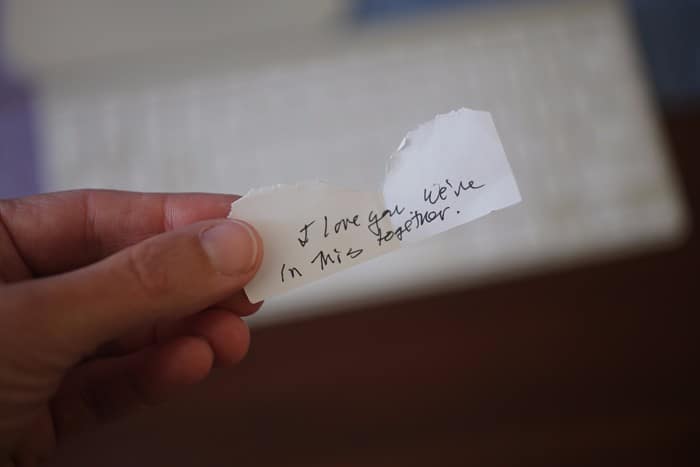 I love you We've
in this together.